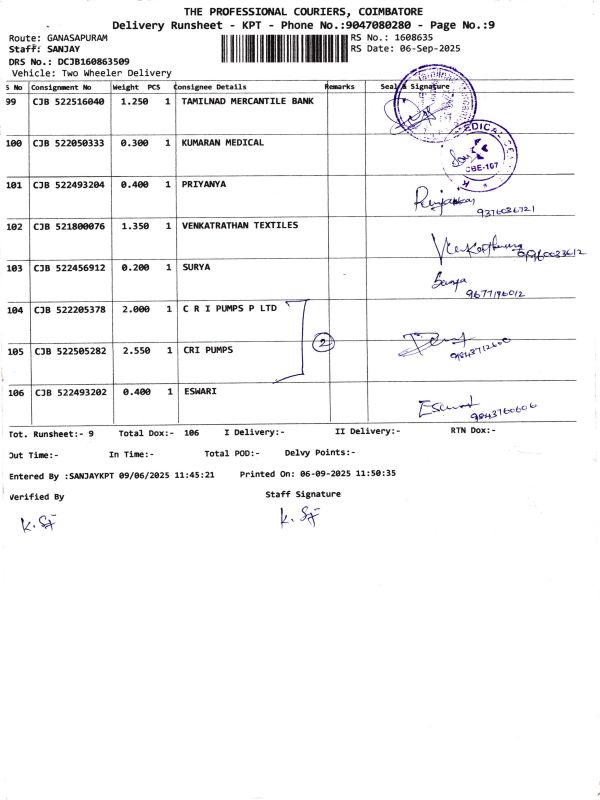 THE PROFESSIONAL COURIERS, COIMBATORE
Delivery Runsheet - KPT - Phone No.:9047080280 - Page No.:9
Route: GANASAPURAM RS No.: 1608635
Staff: SANJAY RS Date: 06-Sep-2025
DRS No.: DCJB160863509
Vehicle: Two Wheeler Delivery
S No Consignment No Weight PCS Consignee Details Remarks Seal & Signature
99 CJB 522516040 1.250 1 TAMILNAD MERCANTILE BANK
100 CJB 522050333 0.300 1 KUMARAN MEDICAL
EDICAL
CBE-107
101 CJB 522493204 0.400 1 PRIYANYA
102 CJB 521800076 1.350 1 VENKATRATHAN TEXTILES
103 CJB 522456912 0.200 1 SURYA
9677196012
104 CJB 522205378 2.000 1 C R I PUMPS P LTD
2
105 CJB 522505282 2.550 1 CRI PUMPS
9843712600
106 CJB 522493202 0.400 1 ESWARI
9843760606
Tot. Runsheet:- 9 Total Dox:- 106 I Delivery:- II Delivery:- RTN Dox:-
Out Time:- In Time:- Total POD:- Delvy Points:-
Entered By :SANJAYKPT 09/06/2025 11:45:21 Printed On: 06-09-2025 11:50:35
Verified By Staff Signature